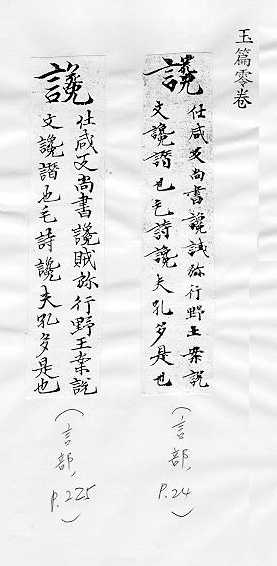 玉篇零卷
讒
仕咸反尚書讒誠弥行野王案説
文讒譖也毛詩讒夫孔多是也
(言部, P.24)
讒
仕咸反尚書讒賊弥行野王案説
文讒譖也毛詩讒夫孔多是也
(言部, P.225)